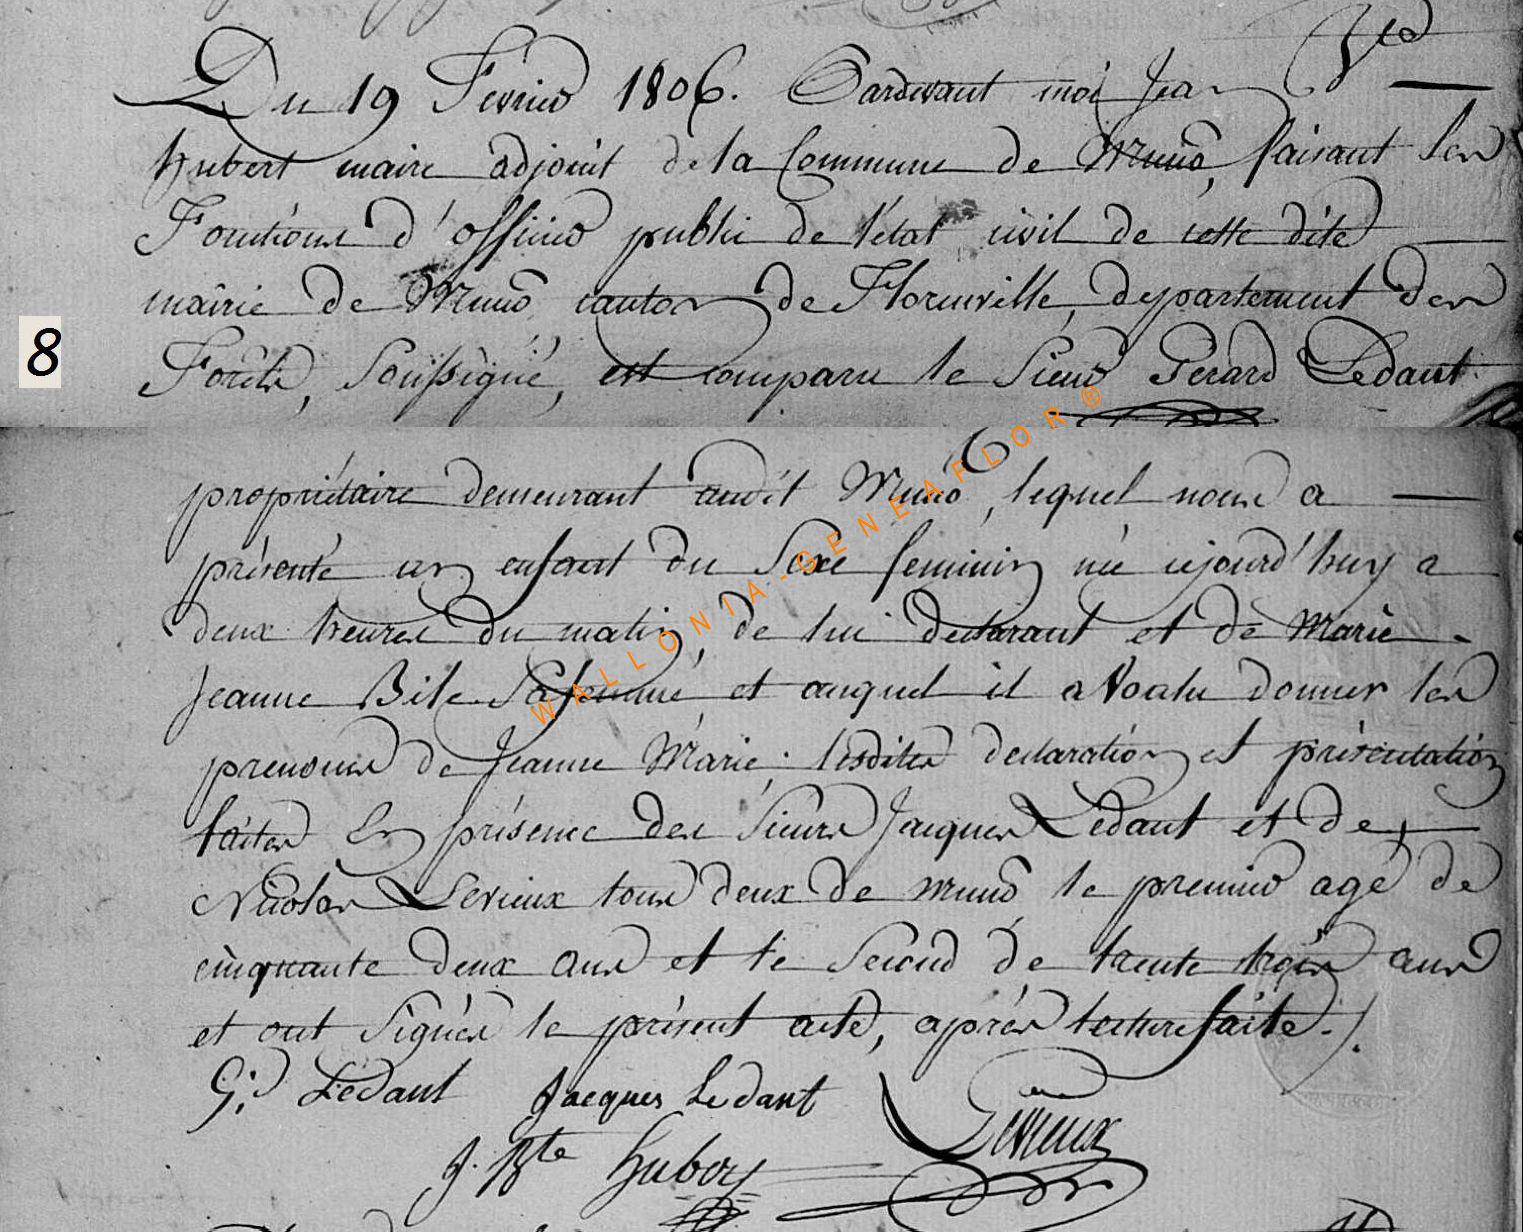 Du 19 Fevrier 1806. Pardevant moi Jean Bte
hubert maire adjoint de la Commune de Muno, faisant les
Fonctions d'officier public de l'état civil de cette dite
mairie de Muno, canton de Florenville, departement des
Forêts, soussigné, est comparu le Sieur Gérard Ledant
8
propriétaire demeurant audit Muno, lequel nous a
présenté un enfant du Sexe feminin né cejourd'huy a
deux heures du matin, de lui declarant et de Marie
Jeanne Bile Sa femme et auquel il a voulu donner les
prenoms de Jeanne Marie; lesdites declaration et présentation
faites En présence des Sieurs Jacques Ledant et de
Nicolas Levieux tous deux de Muno le premier agé de
cinquante deux ans et le Second de trente trois ans
et ont Signés le présent acte, après lecture faite./.
G. Ledant Jacques Ledant Levieux
J. Bte Hubert
WALLONIA-GENEAFLOR®